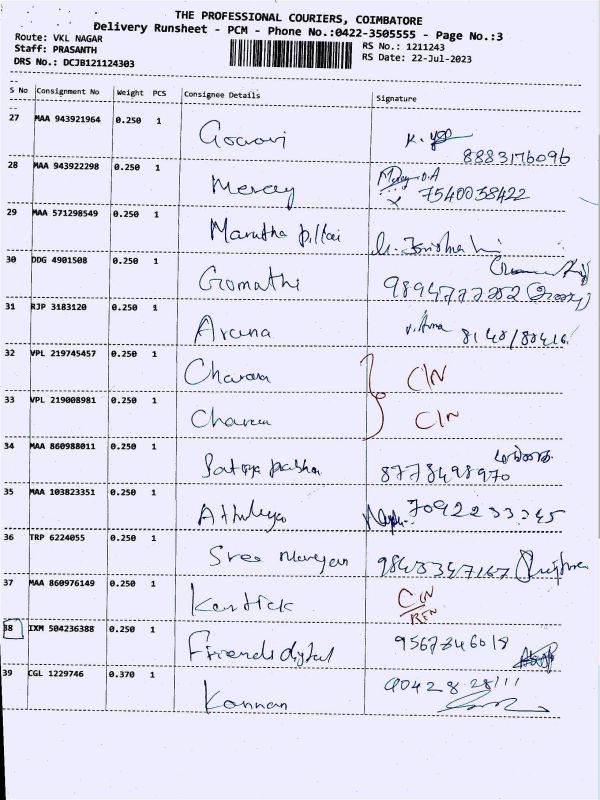 THE PROFESSIONAL COURIERS, COIMBATORE
Delivery Runsheet - PCM - Phone No.:0422-3505555 - Page No.:3
Route: VKL NAGAR
Staff: PRASANTH
DRS No.: DCJB121124303
RS No.: 1211243
RS Date: 22-Jul-2023
S No Consignment No Weight PCS Consignee Details Signature
27 MAA 943921964 0.250 1
8883176096
28 MAA 943922298 0.250 1 Mercy
7540038422
29 MAA 571298549 0.250 1 Marutha pillai
30 DDG 4901508 0.250 1 Gomathi
9894777252
31 RJP 3183120 0.250 1 Aruna
32 VPL 219745457 0.250 1 C/N
33 VPL 219008981 0.250 1 C/N
34 MAA 860988011 0.250 1
8778498970
35 MAA 103823351 0.250 1
7092233345
36 TRP 6224055 0.250 1 Sree
37 MAA 860976149 0.250 1 Kartick C/N
38 IXM 504236388 0.250 1 Friends digital
9567346018
39 CGL 1229746 0.370 1 Kannan
90428 28111